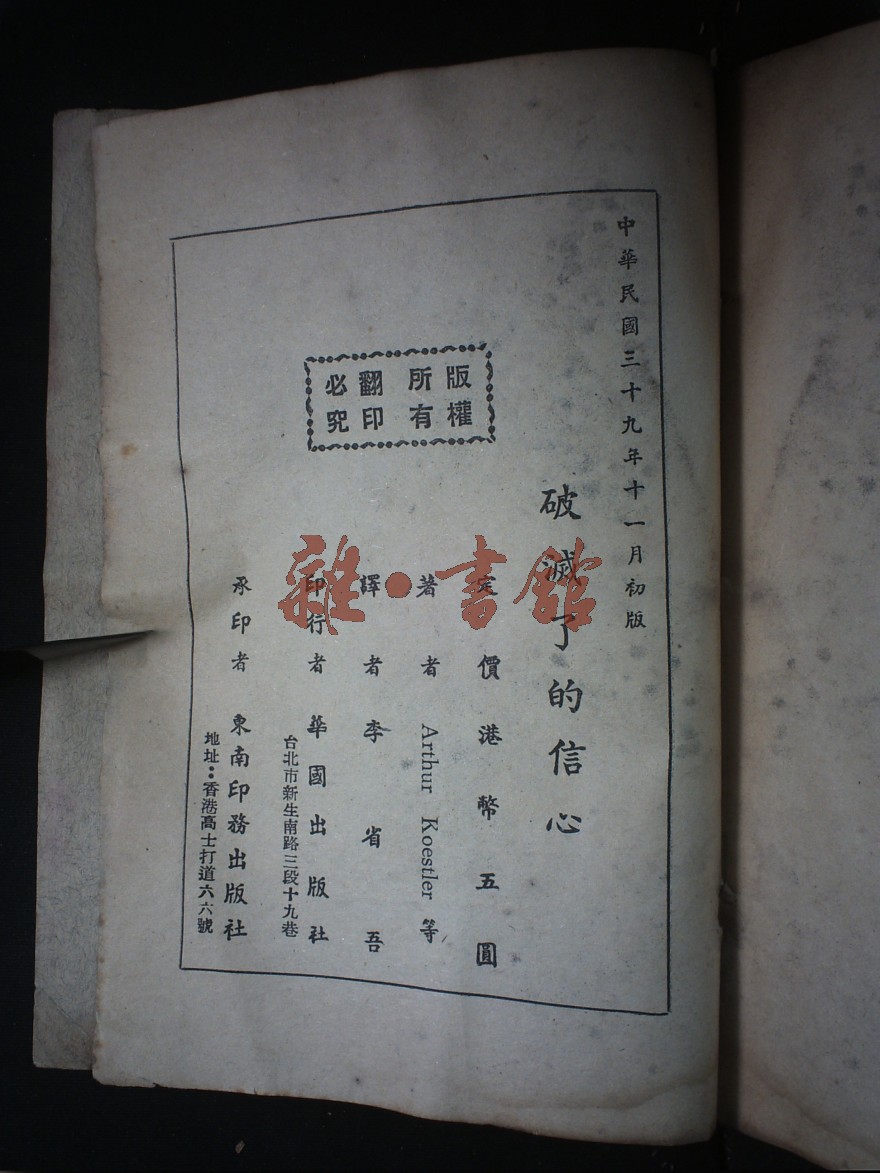 中華民國三十九年十一月初版
破滅了的信心
定價港幣五圓
著者 Arthur Koestler 等
譯者 李省吾
印行者 華國出版社
台北市新生南路三段十九巷
承印者 東南印務出版社
地址：香港高士打道六六號
版權
所有
翻印
必究
雜·書館